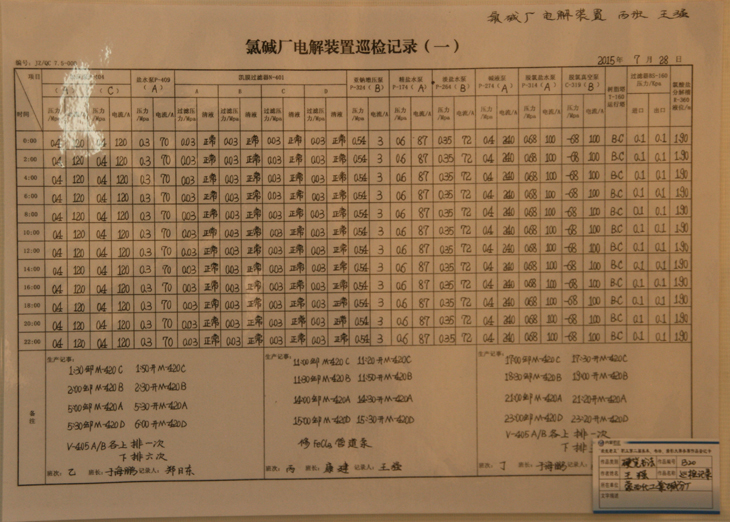 氯碱厂 电解装置 丙班 王强
氯碱厂电解装置巡检记录（一）
编号：JZ/GC 7.5-005
2015年 7 月 28 日
项目
时间
(C)
送水泵P-409
(A)
汎膜过滤器
A B C D
P-324 (B)
P-174 (A)
P-264 (B)
碱液泵
P-274 (A)
P-314 (A)
C-319 (B)
树脂塔
T-160
运行塔
进口 出口
压力/Mpa 电流/A 压力/Mpa 电流/A 压力/Mpa 电流/A
0:00 0.4 120 0.4 120 0.3 70 0.03 正常 0.03 正常 0.03 正常 0.03 正常 0.54 3 0.6 87 0.35 72 0.4 240 0.68 100 -68 100 B.C 0.1 0.1 1.90
2:00 0.4 120 0.4 120 0.3 70 0.03 正常 0.03 正常 0.03 正常 0.03 正常 0.54 3 0.6 87 0.35 72 0.4 240 0.68 100 -68 100 B.C 0.1 0.1 1.90
4:00 0.4 120 0.4 120 0.3 70 0.03 正常 0.03 正常 0.03 正常 0.03 正常 0.54 3 0.6 87 0.35 72 0.4 240 0.68 100 -68 100 B.C 0.1 0.1 1.90
6:00 0.4 120 0.4 120 0.3 70 0.03 正常 0.03 正常 0.03 正常 0.03 正常 0.54 3 0.6 87 0.35 72 0.4 240 0.68 100 -68 100 B.C 0.1 0.1 1.90
8:00 0.4 120 0.4 120 0.3 70 0.03 正常 0.03 正常 0.03 正常 0.03 正常 0.54 3 0.6 87 0.35 72 0.4 240 0.68 100 -68 100 B.C 0.1 0.1 1.90
10:00 0.4 120 0.4 120 0.3 70 0.03 正常 0.03 正常 0.03 正常 0.03 正常 0.54 3 0.6 87 0.35 72 0.4 240 0.68 100 -68 100 B.C 0.1 0.1 1.90
12:00 0.4 120 0.4 120 0.3 70 0.03 正常 0.03 正常 0.03 正常 0.03 正常 0.54 3 0.6 87 0.35 72 0.4 240 0.68 100 -68 100 B.C 0.1 0.1 1.90
14:00 0.4 120 0.4 120 0.3 70 0.03 正常 0.03 正常 0.03 正常 0.03 正常 0.54 3 0.6 87 0.35 72 0.4 240 0.68 100 -68 100 B.C 0.1 0.1 1.90
16:00 0.4 120 0.4 120 0.3 70 0.03 正常 0.03 正常 0.03 正常 0.03 正常 0.54 3 0.6 87 0.35 72 0.4 240 0.68 100 -68 100 B.C 0.1 0.1 1.90
18:00 0.4 120 0.4 120 0.3 70 0.03 正常 0.03 正常 0.03 正常 0.03 正常 0.54 3 0.6 87 0.35 72 0.4 240 0.68 100 -68 100 B.C 0.1 0.1 1.90
20:00 0.4 120 0.4 120 0.3 70 0.03 正常 0.03 正常 0.03 正常 0.03 正常 0.54 3 0.6 87 0.35 72 0.4 240 0.68 100 -68 100 B.C 0.1 0.1 1.90
22:00 0.4 120 0.4 120 0.3 70 0.03 正常 0.03 正常 0.03 正常 0.03 正常 0.54 3 0.6 87 0.35 72 0.4 240 0.68 100 -68 100 B.C 0.1 0.1 1.90
备注
生产记事：
1:30卸M-420C 1:50开M-420C
2:00卸M-420B 2:30开M-420B
5:00卸M-420A 5:30开M-420A
5:30卸M-420D 6:00开M-420D
V-405 A/B各上排一次
下排六次
班次：乙 班长：于海鹏 记录人：郑日东
生产记事：
11:00卸M-420C 11:20开M-420C
11:30卸M-420B 11:50开M-420B
14:00卸M-420A 14:30开M-420A
15:00卸M-420D 15:30开M-420D
修FeCl₃管道泵
班次：丙 班长： 记录人：王强
生产记事：
17:00卸M-420C 17:30开M-420C
18:30卸M-420B 19:00开M-420B
21:00卸M-420A 21:20开M-420A
23:00卸M-420D 23:20开M-420D
V-405 A/B各上排一次
下排
班次：丁 班长：于海鹏 记录人：
硬笔书法 B20
王强 巡检记录